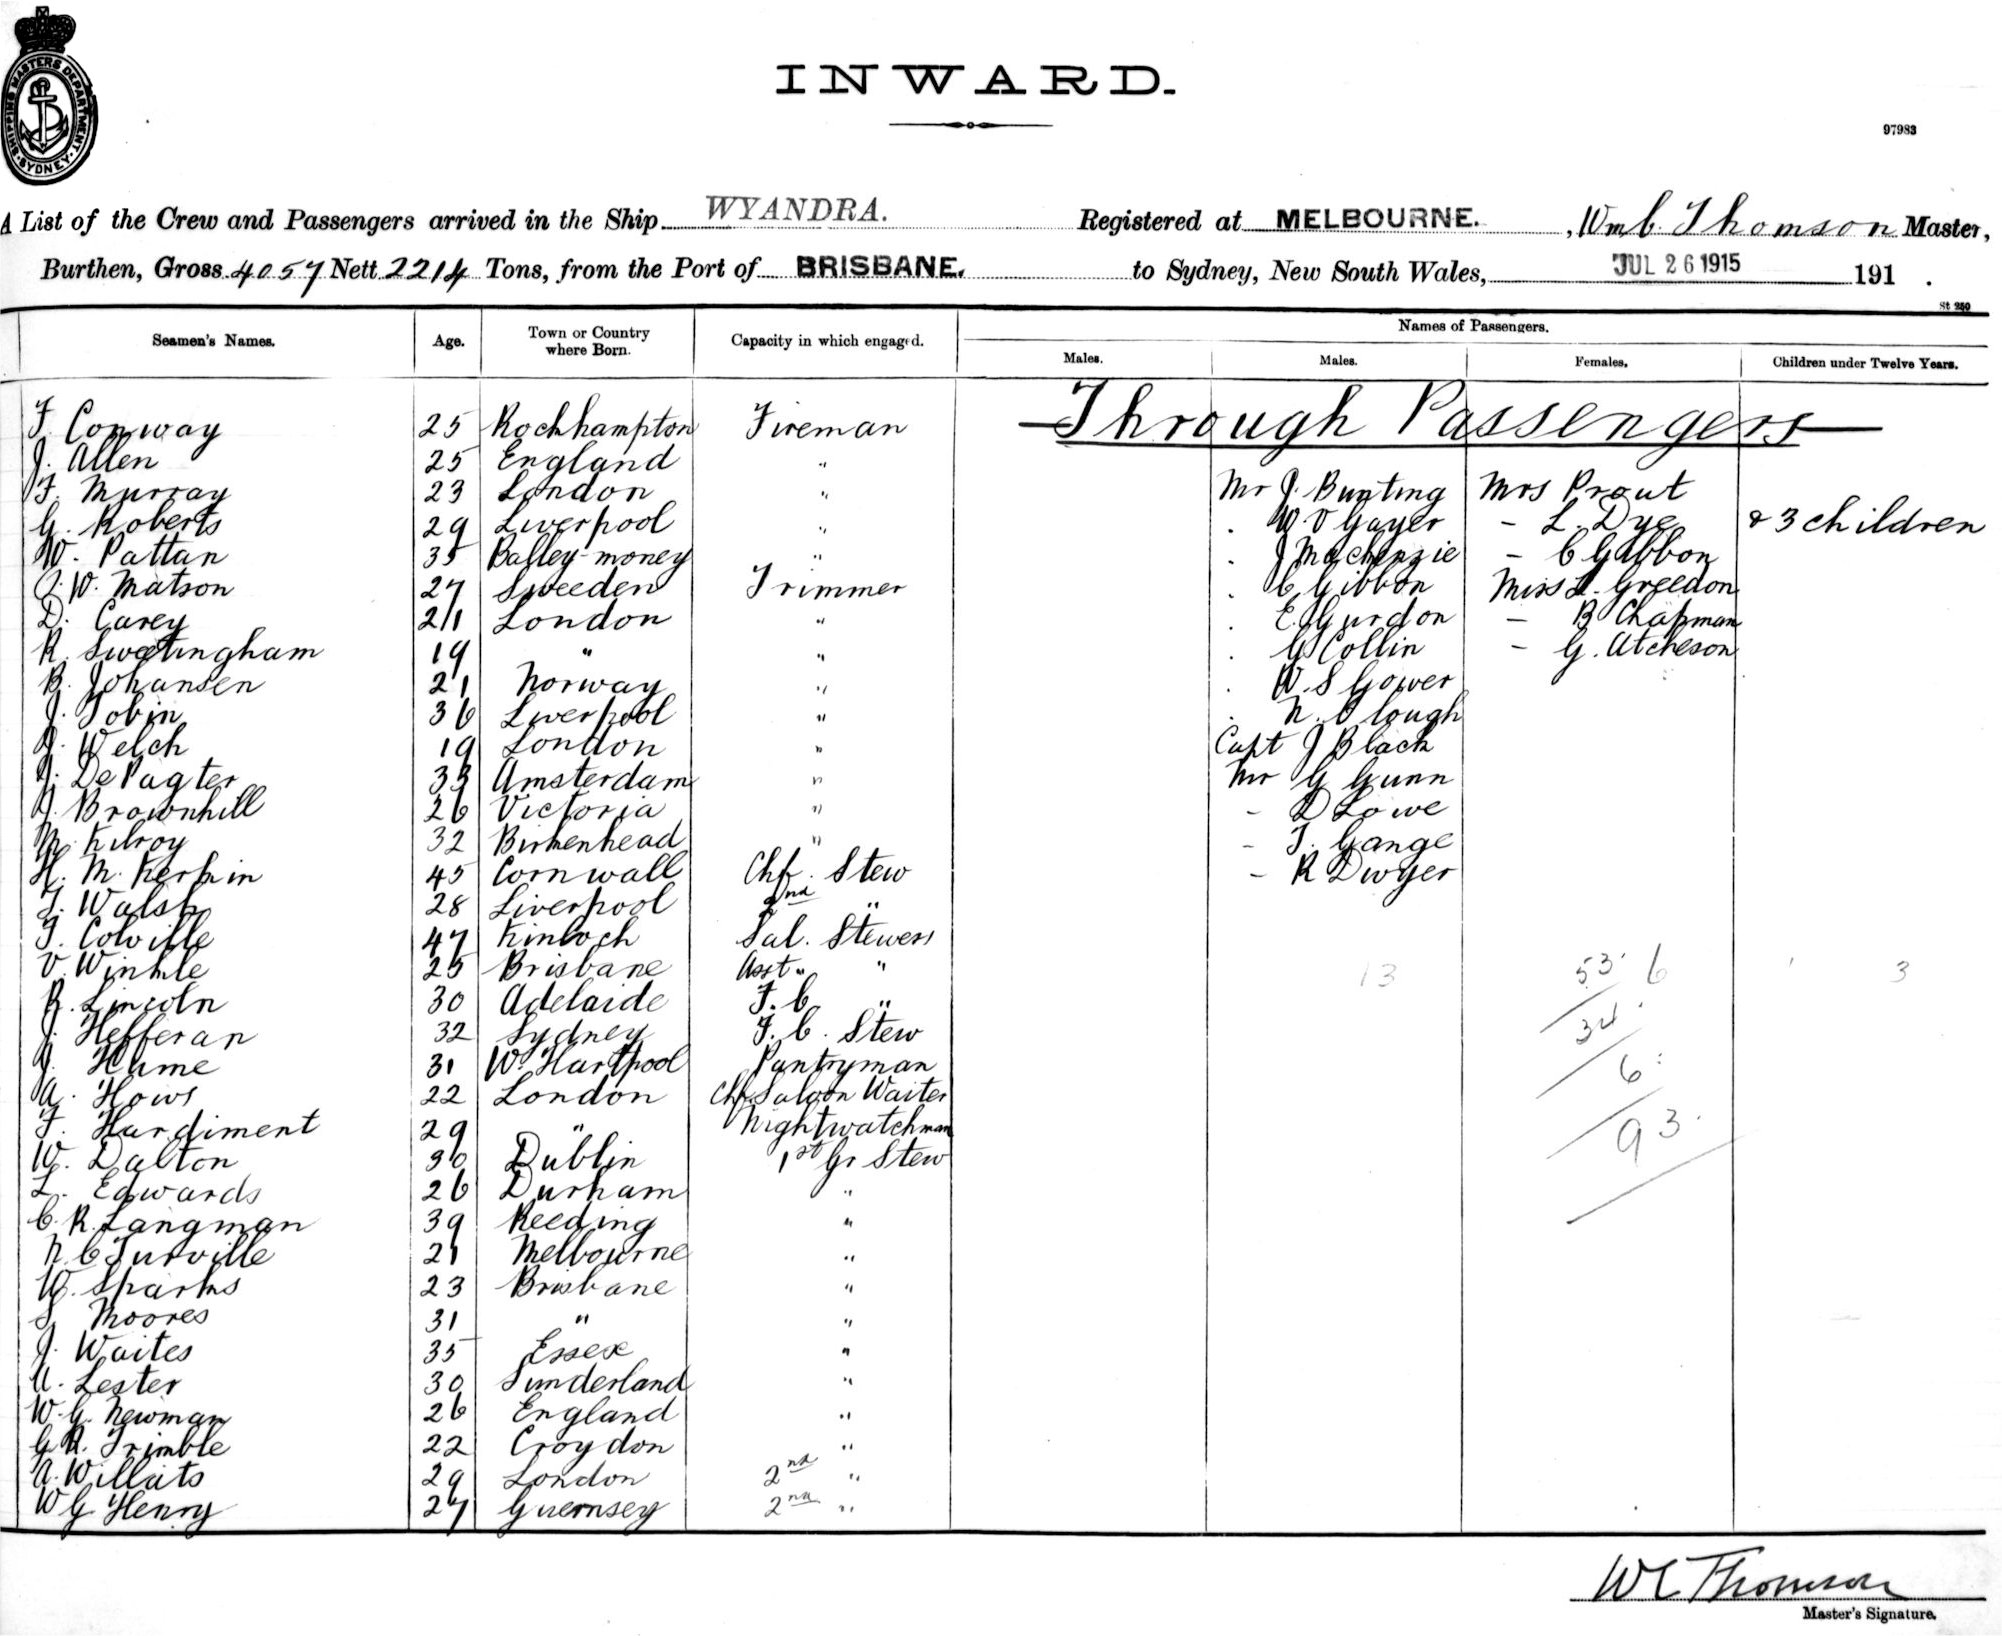 SHIPPING MASTERS DEPARTMENT. SYDNEY.
INWARD.
97983
A List of the Crew and Passengers arrived in the Ship WYANDRA. Registered at MELBOURNE. , Wm C. Thomson Master,
Burthen, Gross 4057 Nett 2214 Tons, from the Port of BRISBANE. to Sydney, New South Wales, JUL 26 1915 191 .
St 250
Seamen's Names. Age. Town or Country where Born. Capacity in which engaged. Names of Passengers.
Males. Males. Females. Children under Twelve Years.
Through Passengers
F. Conway 25 Rockhampton Fireman
J. Allen 25 England "
F. Murray 23 London " Mr J. Bunting Mrs Prout
G. Roberts 29 Liverpool " . W V Gayer - L. Dye & 3 children
W. Pattan 35 Balley-money " . J Mackenzie - C Gibbon
W. Matson 27 Sweeden Trimmer . C Gibbon Miss L. Greedon
D. Carey 21 London " . E Gurdon - B Chapman
R. Sweetingham 19 " " . G Collin - G. Atcheson
B. Johansen 21 Norway " . W. S Gower
J. Tobin 36 Liverpool " . N. Clough
J. Welch 19 London " Capt J Black
J. De Pagter 33 Amsterdam " Mr G Gunn
J. Brownhill 26 Victoria " - D Lowe
M. Kilroy 32 Birkenhead " - T. Gange
H. M. Kerkin 45 Cornwall Chf. Stew - R Dwyer
T. Walsh 28 Liverpool 2nd "
F. Colville 47 Kinloch Sal. Stewess
V. Winkle 25 Brisbane Asst " " 13 53. 6 3
R. Lincoln 30 Adelaide F. C. "
J. Hefferan 32 Sydney F. C. Stew 34.
J. Hume 31 W. Hartpool Pantryman 6:
A. Hows 22 London Chf. Saloon Waiter
F. Hardiment 29 " Nightwatchman 93.
W. Dalton 30 Dublin 1st Gr Stew
L. Edwards 26 Durham "
C. R. Langman 39 Reeding "
N. C Turville 21 Melbourne "
W. Sparks 23 Brisbane "
S. Moores 31 " "
J. Waites 35 Essex "
A. Lester 30 Sunderland "
W. G. Newman 26 England "
G R. Trimble 22 Croydon "
A. Willats 29 London 2nd "
W G Henry 27 Guernsey 2nd "
W C Thomson
Master's Signature.